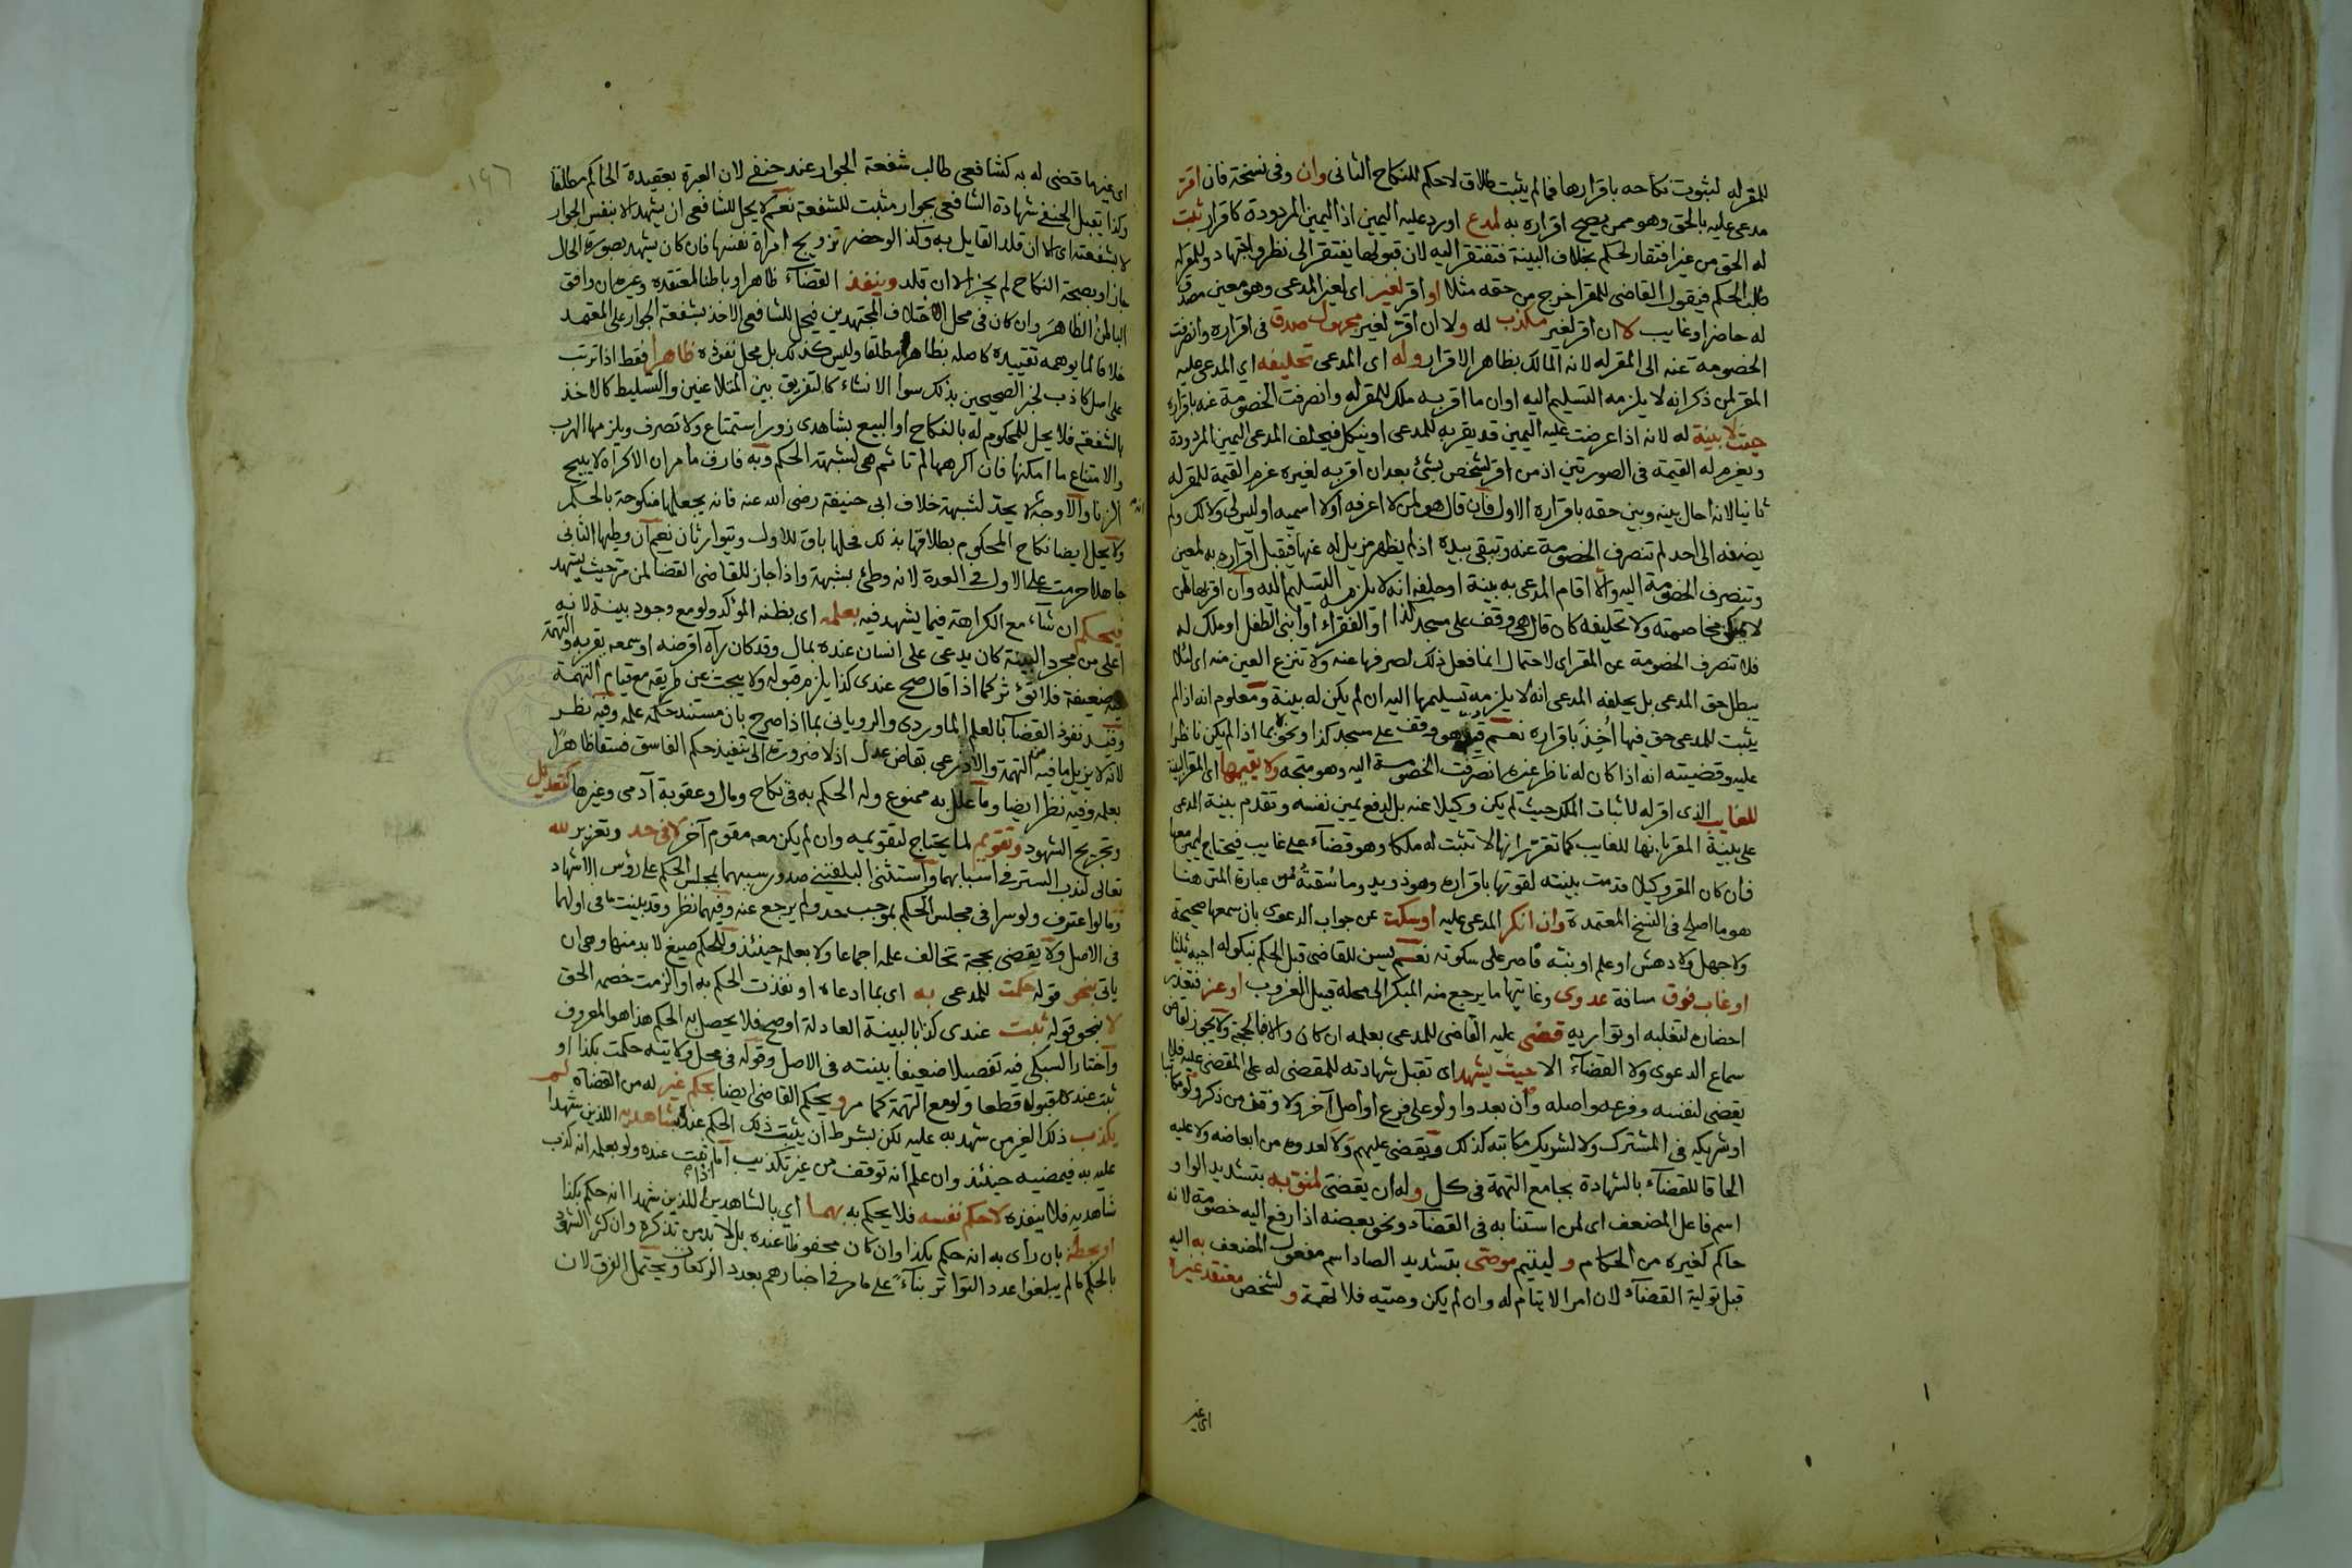 للمقر له لثبوت نكاحه باقرارها فما لم يثبت طلاق لا حكم للنكاح الثانى وان وفى نسخة فان اقر
مدعى عليه بالحق وهو ممن يصح اقراره به لمدع او رد عليه اليمين اذ اليمين المردودة كاقرار ثبت
له الحق من غير افتقار لحكم بخلاف البينة فتفتقر اليه لان قبولها يفتقر الى نظر واجتهاد وللمقر له
طلب الحكم فيقول القاضى للمقر اخرج من حقه مثلا او اقر لغير اى لغير المدعى وهو معين مصدق
له حاضر او غايب لا ان اقر لغير مكذب له ولا ان اقر لغير مجهول صدق فى اقراره وانصرفت
الخصومة عنه الى المقر له لانه المالك بظاهر الاقرار وله اى المدعى تحليفه اى المدعى عليه
المقر لمن ذكر انه لا يلزمه التسليم اليه او ان ما اقر به ملك للمقر له وانصرفت الخصومة عنه باقراره
حيث لا بينة له لانه اذا عرضت عليه اليمين قد يقر به للمدعى او ينكل فيحلف المدعى اليمين المردودة
ويغرم له القيمة فى الصورتين اذ من اقر لشخص بشئ بعد ان اقر به لغيره غرم القيمة للمقر له
ثانيا لانه احال بينه وبين حقه باقراره الاول فان قال هو لمن لا اعرفه او لا اسميه او ليس لى ولا لك ولم
يضفه الى احد لم تنصرف الخصومة عنه وتبقى بيده اذ لم يظهر مزيل له عنها فيقبل اقراره به لمعين
وتنصرف الخصومة اليه والا اقام المدعى به بينة او حلفه انه لا يلزمه التسليم اليه وان اقر بها لمن
لا يمكن مخاصمته ولا تحليفه كان قال هى وقف على مسجد كذا او الفقراء او ابنى الطفل او ملك له
فلا تنصرف الخصومة عن المقر اى لاحتمال انما فعل ذلك لصرفها عنه ولا تنزع العين منه اى لئلا
يبطل حق المدعى بل يحلفه المدعى انه لا يلزمه تسليمها اليه ان لم يكن له بينة ومعلوم انه اذا لم
يثبت للمدعى حق فيها اُخِذَ باقراره نعم قيد هو وقف على مسجد كذا ونحوه بما اذا لم يكن ناظرا
عليه وقضيته انه اذا كان له ناظر غيره انصرفت الخصومة اليه وهو متجه ولا يقيمها اى المقر البينة
للغايب الذى اقر له لاثبات الملك حيث لم يكن وكيلا عنه بل لدفع يمين نفسه وتقدم بينة المدعى
على بينة المقر بانها للغايب كما تقرر انها لا تثبت له ملكا وهو قضاء على غايب فيحتاج ليمين معها
فان كان المقر وكيلا قدمت بينته لقوتها باقراره وهو ذو يد وما سُقتُهُ من عبارة المتن هنا
هو ما اصلح فى النسخ المعتمدة وان انكر المدعى عليه او سكت عن جواب الدعوى بان سمعها صحيحة
ولا جهل ولا دهش او علم او نبه فاصر على سكوته نعم يسن للقاضى قبل الحكم بنكوله اجبه ثلثا
او غاب فوق مسافة عدوى وغايتها ما يرجع منه المبكر الى محله قبيل الغروب او عز فتعذر
احضاره لتغلبه او تواريه قضى عليه القاضى للمدعى بعلمه ان كان والا فالحجة ولا يجوز لقاض
سماع الدعوى ولا القضاء الا حيث يشهد اى تقبل شهادته للمقضى له على المقضى عليه فلا
يقضى لنفسه وفرعه واصله وان بعدوا ولو على فرع او اصل آخر ولا وقف من ذكر ولو مكاتبا
او شريكه فى المشترك ولا لشريك مكاتبه كذلك ويقضى عليهم ولا لعدوه من ابعاضه ولا عليه
الحاقا للقضاء بالشهادة بجامع التهمة فى كل وله ان يقضى لمنوبه بتشديد الواو
اسم فاعل المضعف اى لمن استنابه فى القضاء ونحو بعضه اذا رفع اليه خصومة لانه
حاكم كغيره من الحكام و ليتيم موصى بتشديد الصاد اسم مفعول المضعف به اليه
قبل تولية القضاء لان امر الايتام له وان لم يكن وصيه فلا تهمة و لشخص معتقد غير
اى غير
١٩٦
اى غيرها قضى له به كشافعى طالب شفعة الجوار عند حنفى لان العبرة بعقيدة الحاكم مطلقا
وكذا يقبل الحنفى شهادة الشافعى بجوار مثبت للشفعة نعم لا يحل للشافعى ان يشهد الا بنفس الجوار
لا بشفعته اى الا ان قلد القايل به وكذا لو حضر تزويج امراة نفسها فان كان يشهد بصورة الحال
جاز او بصحة النكاح لم يجز الا ان قلد وينفذ القضاء ظاهرا وباطنا لمعتقده وغيره ان وافق
الباطن الظاهر وان كان فى محل اختلاف المجتهدين فيحل للشافعى الاخذ بشفعة الجوار على المعتمد
خلافا لما يوهمه تقييده كاصله بظاهرا مطلقا وليس كذلك بل محل نفوذه ظاهرا فقط اذا ترتب
على اصل كاذب لخبر الصحيحين بذلك سوا الانشاء كالتفريق بين المتلاعنين والتسليط كالاخذ
بالشفعة فلا يحل للمحكوم له بالنكاح او البيع بشاهدى زور استمتاع ولا تصرف ويلزمها الهرب
والامتناع ما امكنها فان اكرهها لم تاثم هى لشبهة الحكم وبه فارق ما مر ان الاكراه لا يبيح
الزنا والاوجه انه لا يحد لشبهة خلاف ابى حنيفة رضى الله عنه فانه يجعلها منكوحة بالحكم
ولا يحل ايضا نكاح المحكوم بطلاقها بذلك فحلها باق للاول ويتوارثان نعم ان وطئها الثانى
جاهلا حرمت على الاول فى العدة لانه وطئ بشبهة واذا جاز للقاضى القضا لمن مر حيث يشهد
فيحكم ان شاء مع الكراهة فيما يشهد فيه بعلمه اى بظنه المؤكد ولو مع وجود بينة لانه
اعلى من مجرد البينة كان يدعى على انسان عنده بمال وقد كان رآه اقرضه او سمعه يقر به والتهمة
فيه ضعيفة فلا تؤثر كما اذا قال صح عندى كذا يلزم قبوله ولا يبحث عن طريقه مع قيام التهمة
وقيد نفوذ القضا بالعلم الماوردى والرويانى بما اذا صرح بان مستند حكمه علمه وفيه نظر
لانه لا يزيل ما فيه من التهمة والاذرعى بقاض عدل اذ لا ضرورة الى تنفيذ حكم الفاسق فسقا ظاهرا
بعلمه وفيه نظر ايضا وما علل به ممنوع وله الحكم به فى نكاح ومال وعقوبة آدمى وغيرها كتعديل
وتجريح الشهود وتقويم لما يحتاج لتقويمه وان لم يكن معه مقوم آخر لا فى حد وتعزير لله
تعالى لندب الستر فى اسبابهما واستثنى البلقينى صدور سببهما بمجلس الحكم على رؤس الاشهاد
وما لو اعترف ولو سرا فى مجلس الحكم بموجب حد ولم يرجع عنه وفيهما نظر وقد بينت ما فى اولهما
فى الاصل ولا يقضى بحجة تخالف علمه اجماعا ولا بعلمه حينئذ وللحكم صيغ لا بد منها وهى ان
ياتى بنحو قوله حكمت للمدعى به اى بما ادعاه او نفذت الحكم به او الزمت خصمه الحق
لا بنحو قوله ثبت عندى كذا بالبينة العادلة او صح فلا يحصل به الحكم هذا هو المعروف
واختار السبكى فيه تفصيلا ضعيفا بينته فى الاصل وقوله فى محل ولايته حكمت بكذا او
ثبت عندى كذا مقبول قطعا ولو مع التهمة كما مر ويحكم القاضى ايضا بحكم غير له من القضاه لم
يكذب ذلك الغير من شهد به عليه لكن بشرط ان يثبت ذلك الحكم عنده بشاهديه اللذين شهدا
عليه به فيمضيه حينئذ وان علم انه توقف من غير تكذيب اما اذا ثبت عنده ولو بعلمه انه كذب
شاهديه فلا ينفذه لا حكم نفسه فلا يحكم به بهما اى بالشاهدين اللذين شهدا انه حكم بكذا
او بخطه بان رأى به انه حكم بكذا وان كان محفوظا عنده بل لا بد من تذكره وان كثر الشهود
بالحكم ما لم يبلغوا عدد التواتر بناءً على ما مر فى اخبارهم بعدد الركعات ويحتمل الفرق لان